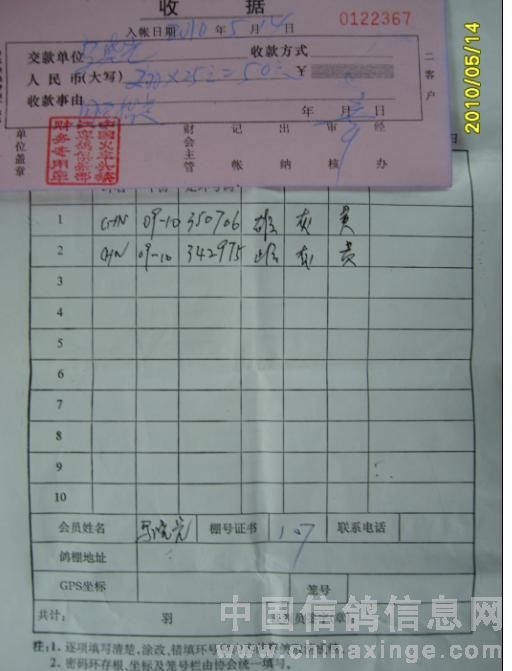 收 据
0122367
入帐日期2010年5月14日
交款单位 收款方式
人民币(大写) 2羽×25元=50元 ¥
收款事由
年 月 日
单位盖章
财会主管
记帐
出纳
审核
经办
二客户
2010/05/14
日
1 CHN 09-10 350706 雄 灰 黄
2 CHN 09-10 342975 雌 灰 黄
3
4
5
6
7
8
9
10
会员姓名 棚号证书 107 联系电话
鸽棚地址
GPS坐标 笼号
共计: 羽
注:1. 逐项填写清楚,涂改、错填环号
2. 密码环存根,坐标及笼号栏由协会统一填写。
中国信鸽信息网
www.chinaxinge.com